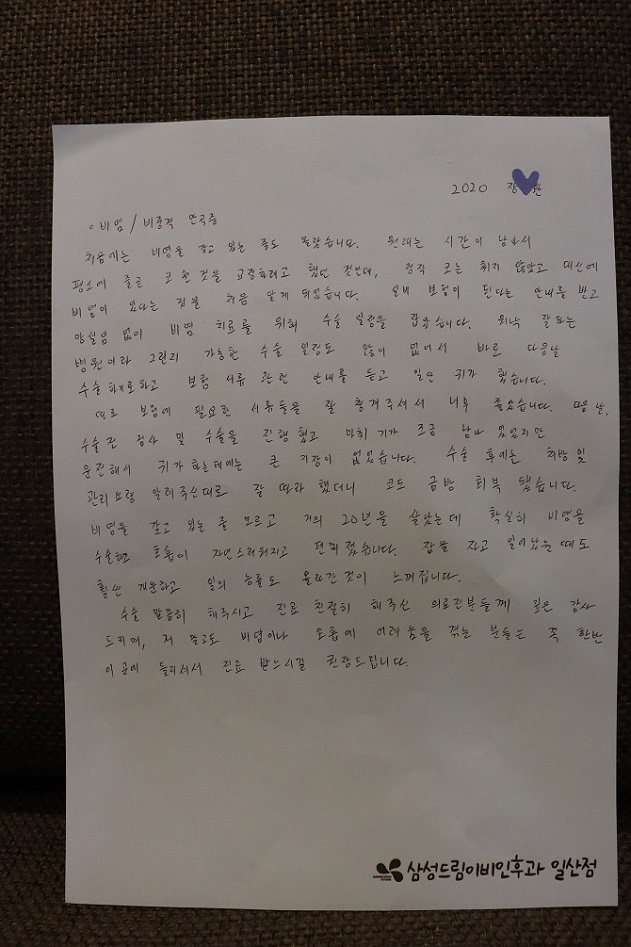 2020 장 관
• 비염 / 비중격 만곡증
처음에는 비염을 갖고 있는 줄도 몰랐습니다. 원래는 시간이 남아서
평소에 줄곧 코 휜 것을 교정하려고 했던 것인데, 정작 코는 휘지 않았고 대신에
비염이 있다는 것을 처음 알게 되었습니다. 실비 보험이 된다는 안내를 받고
망설임 없이 비염 치료를 위해 수술 일정을 잡았습니다. 워낙 잘하는
병원이라 그런지 가능한 수술 일정도 많이 없어서 바로 다음날
수술하기로하고 보험 서류 관련 안내를 듣고 일단 귀가 했습니다.
따로 보험에 필요한 서류들을 잘 챙겨주셔서 너무 좋았습니다. 다음 날,
수술 전 검사 및 수술을 진행 했고 마취 기가 조금 남아 있었지만
운전해서 귀가 하는데에는 큰 지장이 없었습니다. 수술 후에는 처방 및
관리 요령 알려주신대로 잘 따라 했더니 코도 금방 회복 됐습니다.
비염을 갖고 있는 줄 모르고 거의 20년을 살았는데 확실히 비염을
수술하고 호흡이 자연스러워지고 편해졌습니다. 잠을 자고 일어났을 때도
훨씬 개운하고 일의 능률도 올라간 것이 느껴집니다.
수술 말끔히 해주시고 진료 친절히 해주신 의료진분들께 깊은 감사
드리며, 저 말고도 비염이나 호흡에 어려움을 겪는 분들은 꼭 한번
이곳에 들리셔서 진료 받으시길 권장드립니다.
삼성드림이비인후과 일산점